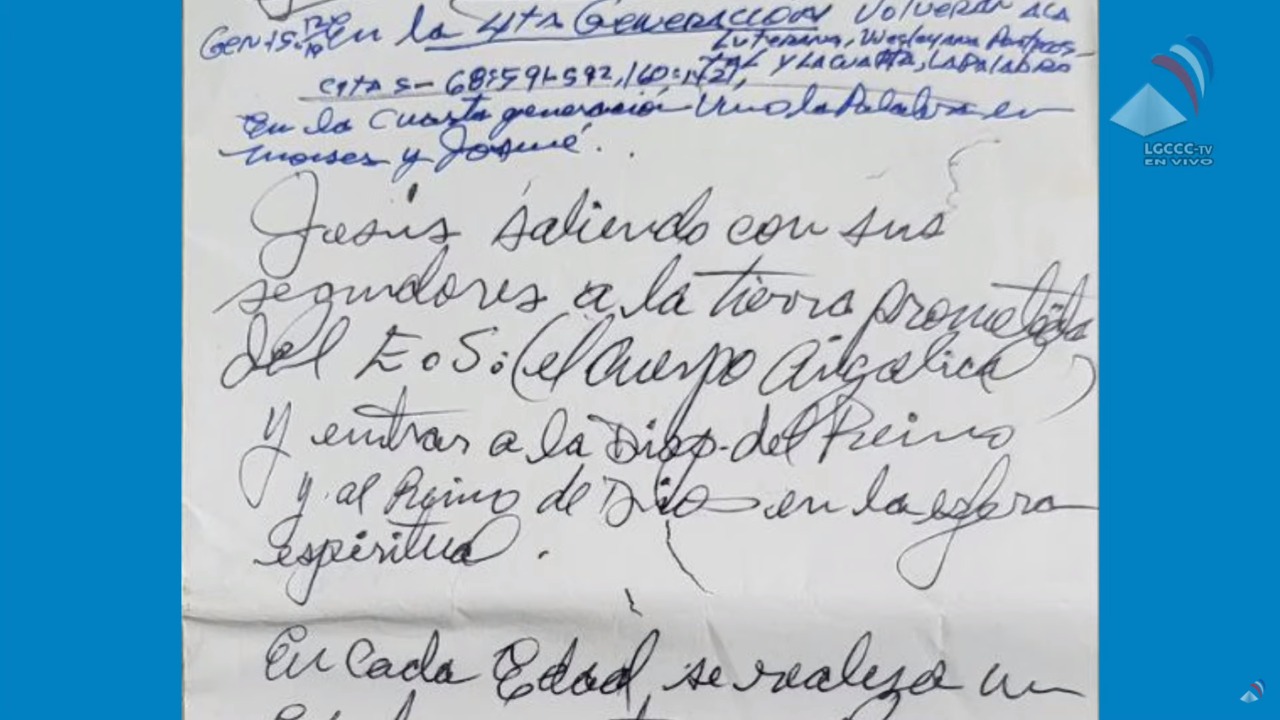 Gen. 15:
En la 4ta Generación Volverán a la
Luterana, Wesleyana Pentecos-
tal y la cuarta, La Palabra
citas - 68:591-592, 160:1421,
En la cuarta generación vino la Palabra en
Moises y Josué.
Jesús saliendo con sus
seguidores a la tierra prometida
del E.S: (el Cuerpo Angelical)
y entrar a la Disp. del Reino
y al Reino de Dios en la esfera
espiritual.
En cada Edad, se realiza un
LGCCC-TV
EN VIVO